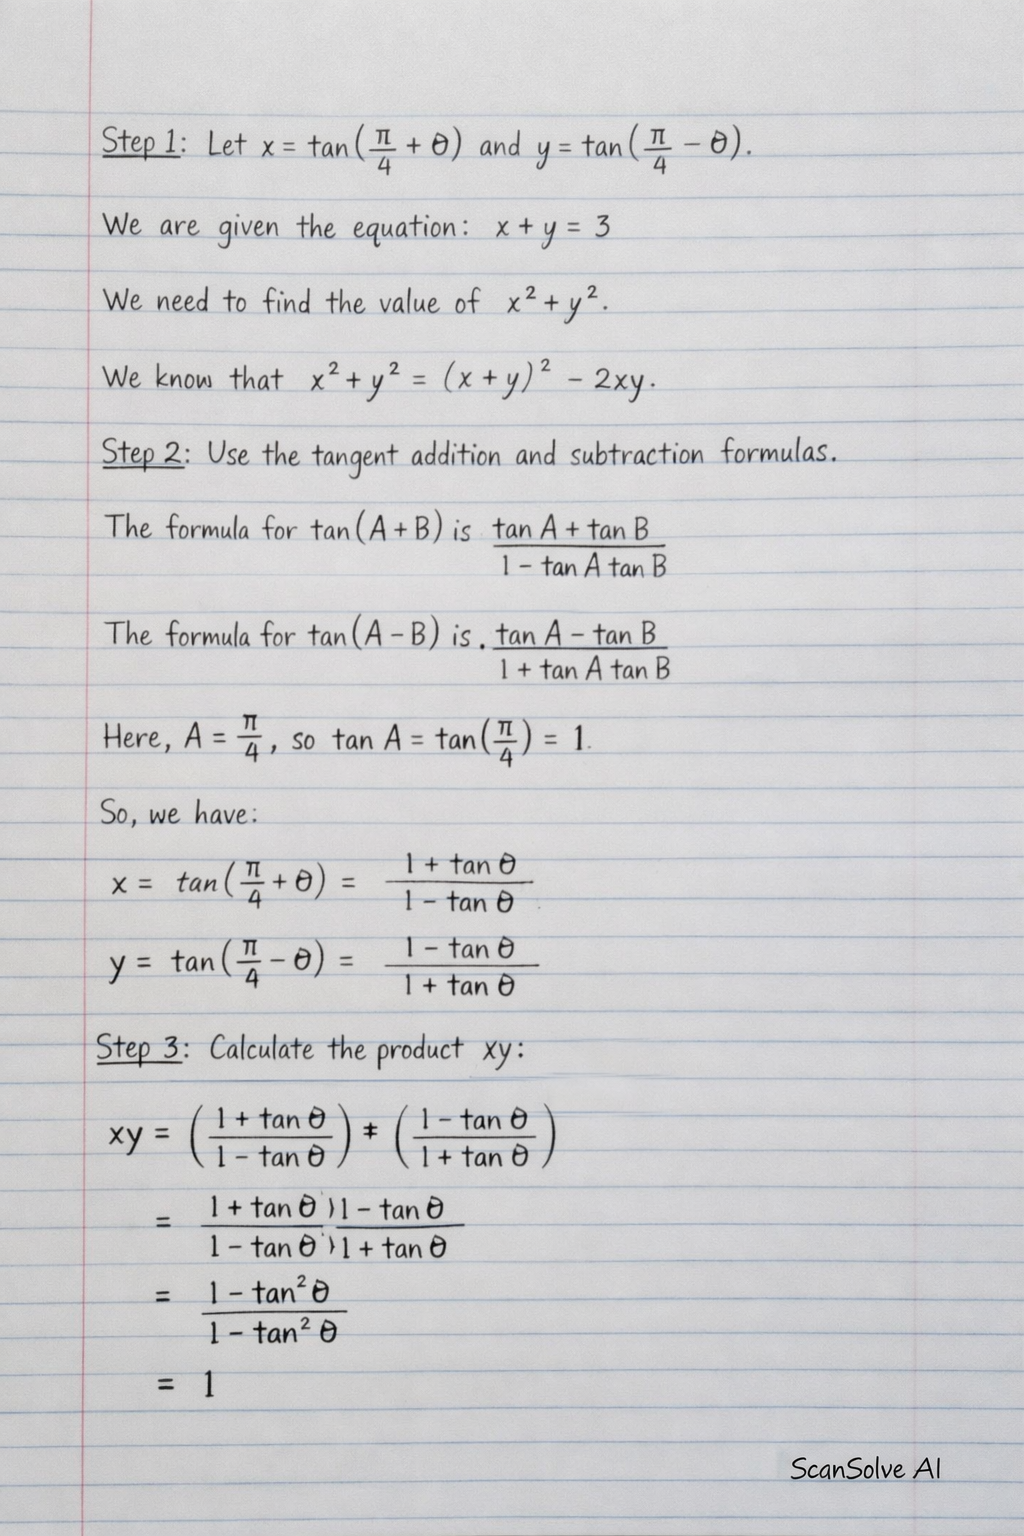 Step 1: Let x = tan(π/4 + θ) and y = tan(π/4 − θ).
We are given the equation: x + y = 3
We need to find the value of x² + y².
We know that x² + y² = (x + y)² − 2xy.
Step 2: Use the tangent addition and subtraction formulas.
The formula for tan(A + B) is (tan A + tan B)/(1 − tan A tan B)
The formula for tan(A − B) is . (tan A − tan B)/(1 + tan A tan B)
Here, A = π/4, so tan A = tan(π/4) = 1.
So, we have:
x = tan(π/4 + θ) = (1 + tan θ)/(1 − tan θ)
y = tan(π/4 − θ) = (1 − tan θ)/(1 + tan θ)
Step 3: Calculate the product xy:
xy = ((1 + tan θ)/(1 − tan θ)) ‡ ((1 − tan θ)/(1 + tan θ))
= (1 + tan θ)(1 − tan θ)/(1 − tan θ)(1 + tan θ)
= (1 − tan² θ)/(1 − tan² θ)
= 1
ScanSolve AI